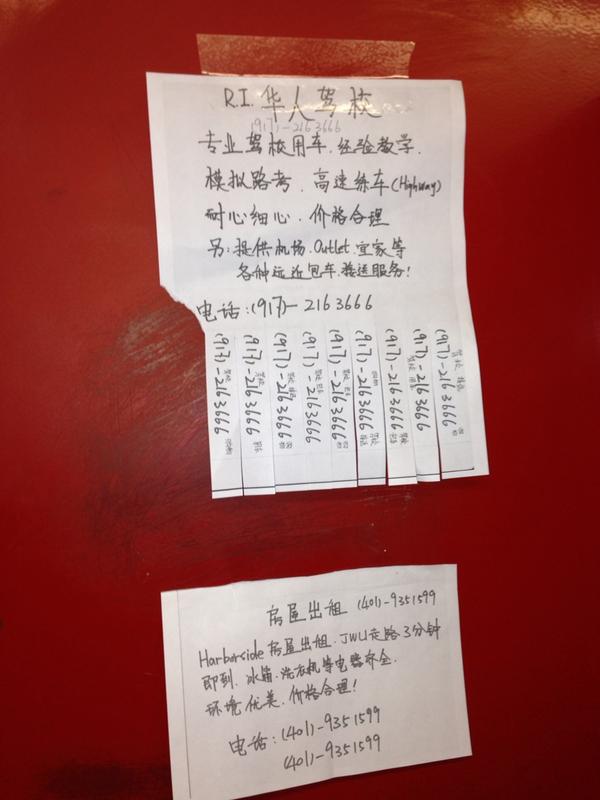 R.I. 华人驾校
(917)-2163666
专业驾校用车.经验教学.
模拟路考.高速练车(Highway)
耐心细心.价格合理
另:提供机场.Outlet.宜家等
各种远近包车.接送服务!
电话:(917)-2163666
(917)-2163666
(917)-2163666
(917)-2163666
(917)-2163666
(917)-2163666
(917)-2163666
(917)-2163666
(917)-2163666
(917)-2163666
房屋出租 (401)-9351599
Harborside 房屋出租.JWU走路3分钟
即到.冰箱.洗衣机等电器齐全.
环境优美.价格合理!
电话:(401)-9351599
(401)-9351599